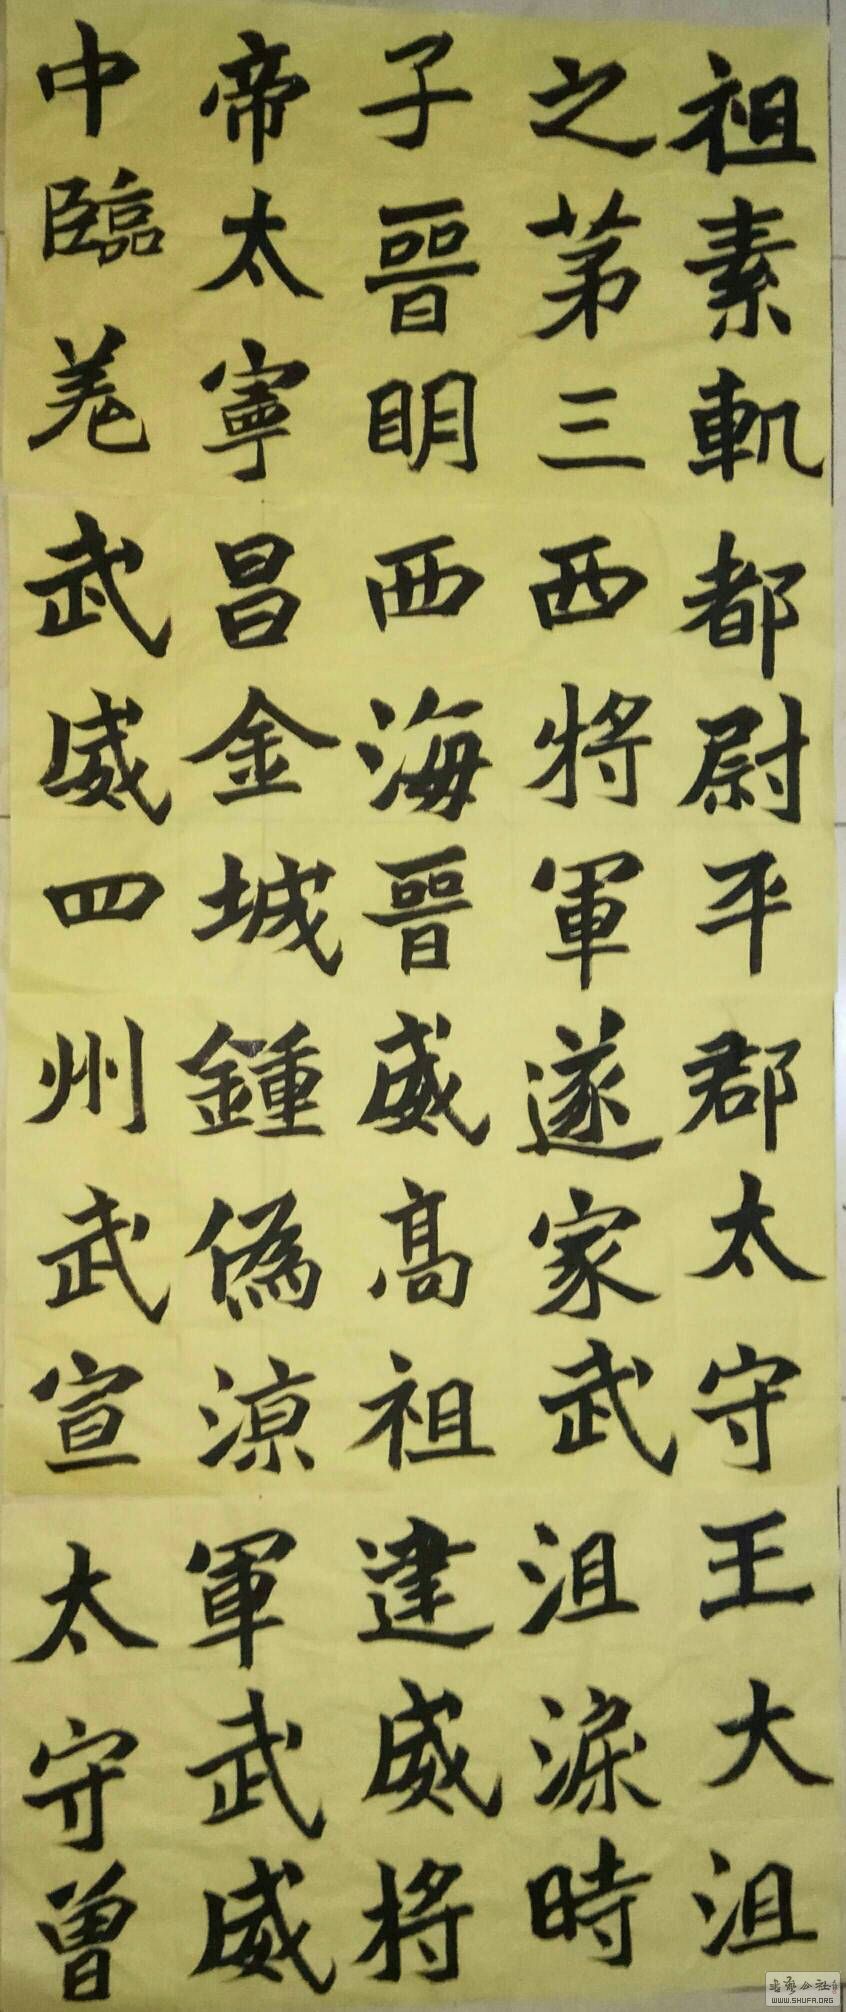 祖素軌都尉平郡太守王大沮
之第三西將軍遂家武沮渠時
子晉明西海晉威高祖建威將
帝太寧昌金城鍾偽涼軍武威
中臨羌武威四州武宣太守曾
WWW.SHUFA.ORG